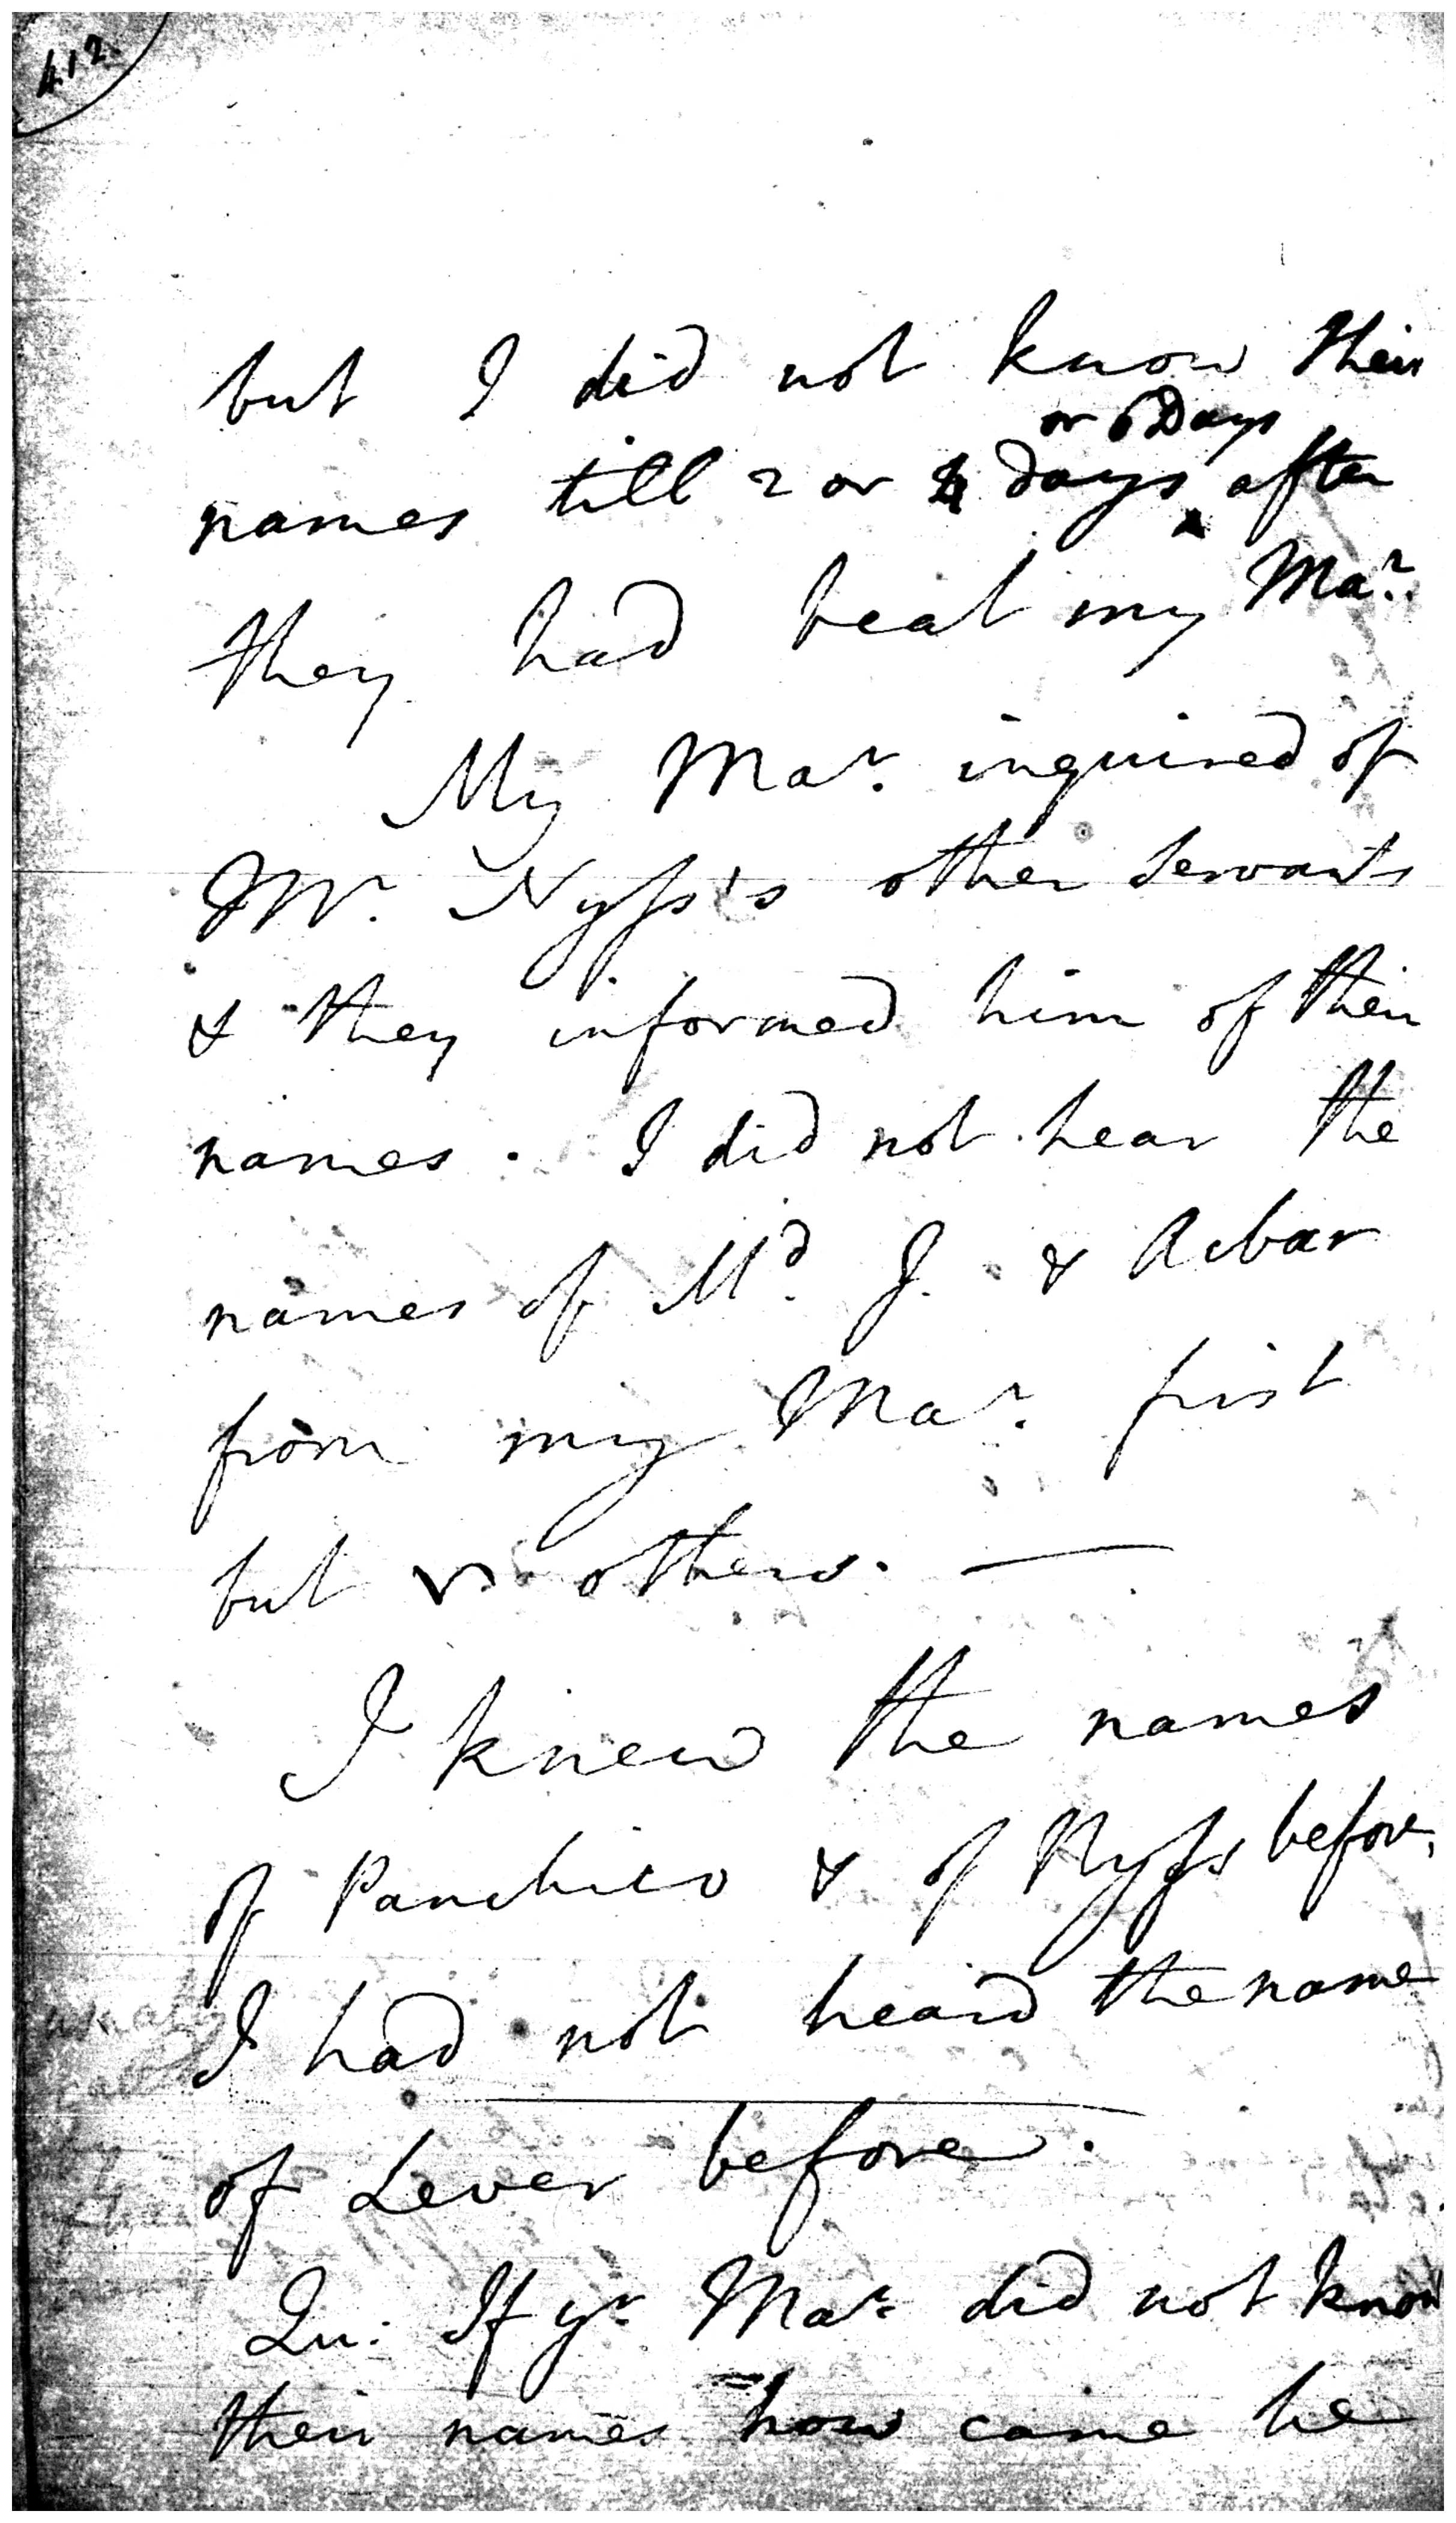 412.
but I did not know their
or 6 Days
names till 2 or 4 days ^ after
they had beat my Mar.
My Mar. inquired of
Mr. Nyss's other servants
& they informed him of their
names. I did not hear the
names of Md. J. & Acbar
from my Mar. first
but others. —
I knew the names
of Panchico & of Nyss before,
I had not heard the name
of Lever before.
Qu: If yr. Mar. did not know
their names how came he